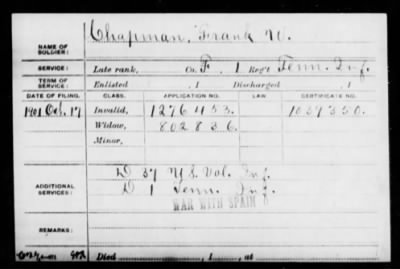 NAME OF SOLDIER: Chapman, Frank W.
SERVICE: Late rank, Co. F, 1 Reg't Tenn. Inf.
TERM OF SERVICE: Enlisted , 1 Discharged , 1
DATE OF FILING. CLASS. APPLICATION NO. LAW. CERTIFICATE NO.
1901 Oct. 17 Invalid, 1276453. 1037350.
Widow, 802836.
Minor,
ADDITIONAL SERVICES: D 37 U.S. Vol. Inf.
D 1 Tenn. Inf.
WAR WITH SPAIN
REMARKS:
Died , 1 , at